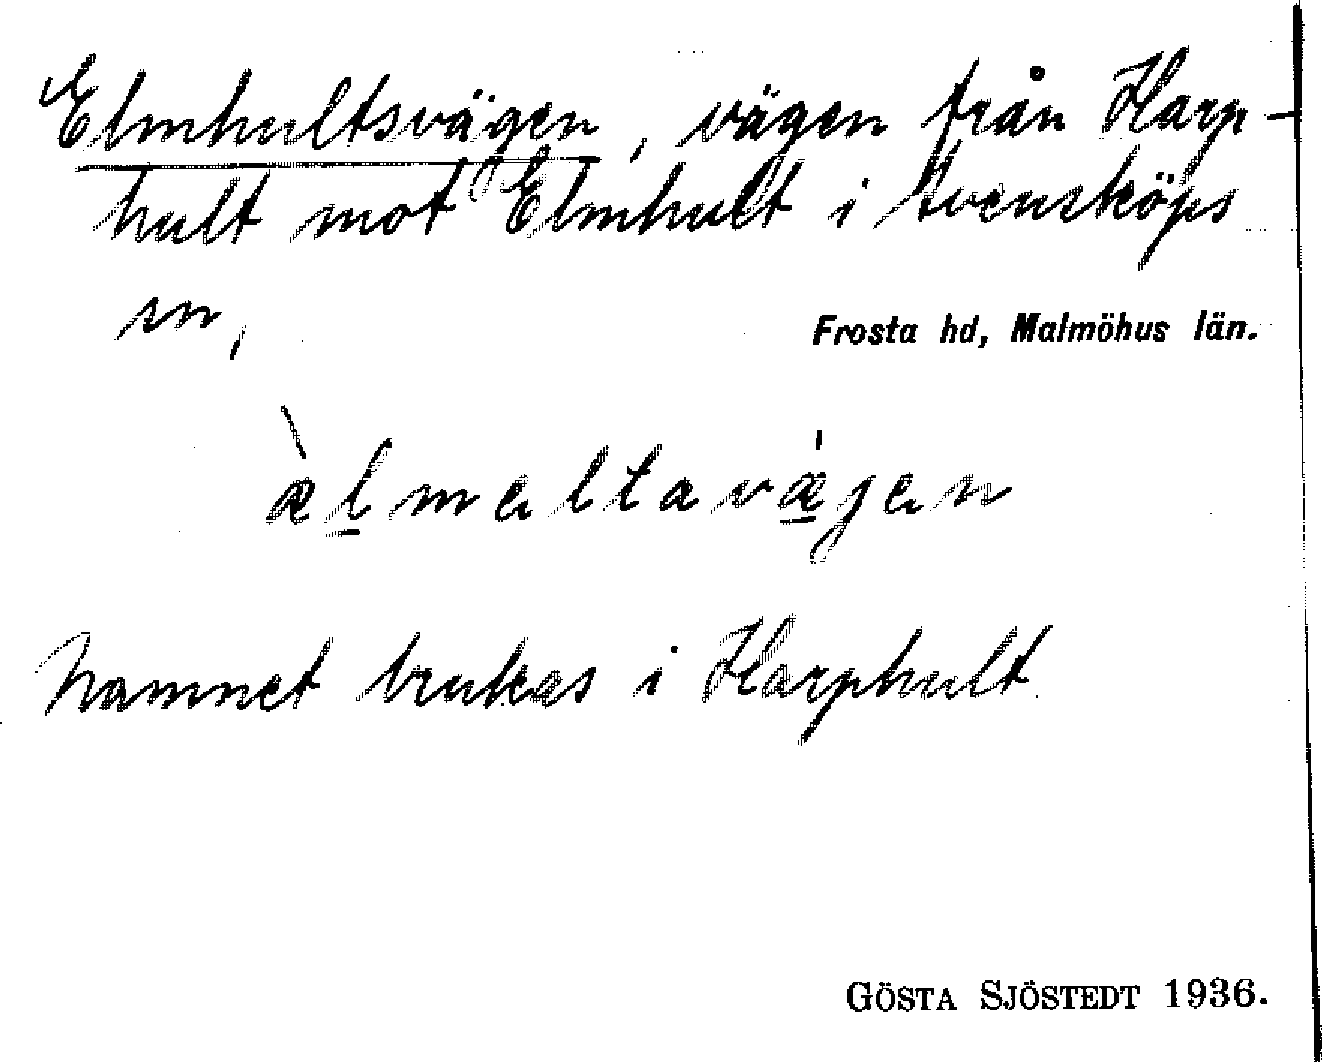 Elmhultsvägen, vägen från Harp-
hult mot Elmhult i Svensköps
sn,
Frosta hd, Malmöhus län.
æ̀l̲mαltavæ̲̍jαn
Namnet brukas i Harphult.
GÖSTA SJÖSTEDT 1936.